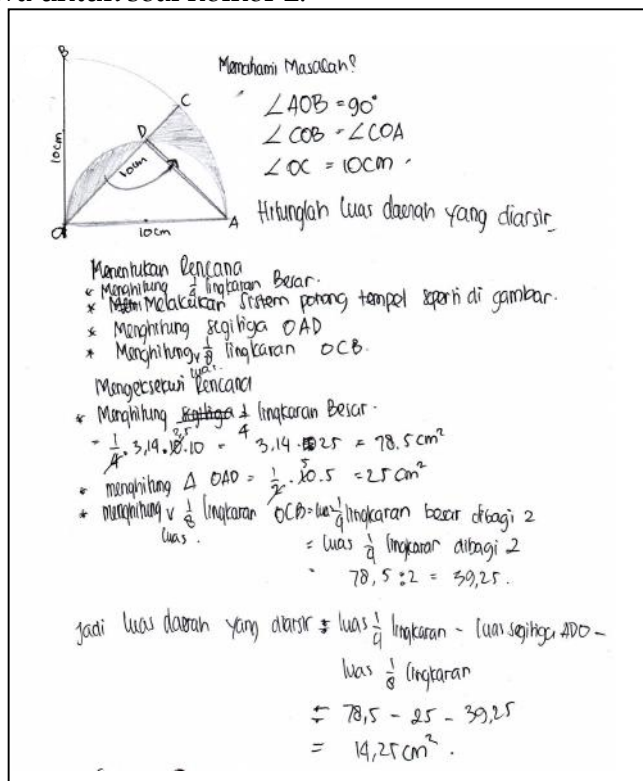 B
C
D
10cm
10cm
A
10cm
Memahami Masalah?
∠AOB = 90°
∠COB = ∠COA
∠OC = 10cm
Hitunglah luas daerah yang diarsir
Menentukan Rencana
* Menghitung 1/4 lingkaran Besar.
* Melakukan sistem potong tempel seperti di gambar.
* Menghitung segitiga OAD
* Menghitung luas 1/8 lingkaran OCB.
Mengeksekusi Rencana
* Menghitung 1/4 lingkaran Besar.
= 1/4 . 3,14 . 10 . 10 = 3,14 . 25 = 78.5 cm²
* menghitung Δ OAD = 1/2 . 10 . 5 = 25 cm²
* menghitung luas 1/8 lingkaran OCB = luas 1/4 lingkaran besar dibagi 2
= luas 1/4 lingkaran dibagi 2
78,5 : 2 = 39,25.
Jadi luas daerah yang diarsir = luas 1/4 lingkaran - luas segitiga ADO -
luas 1/8 lingkaran
= 78,5 - 25 - 39,25
= 14,25 cm².